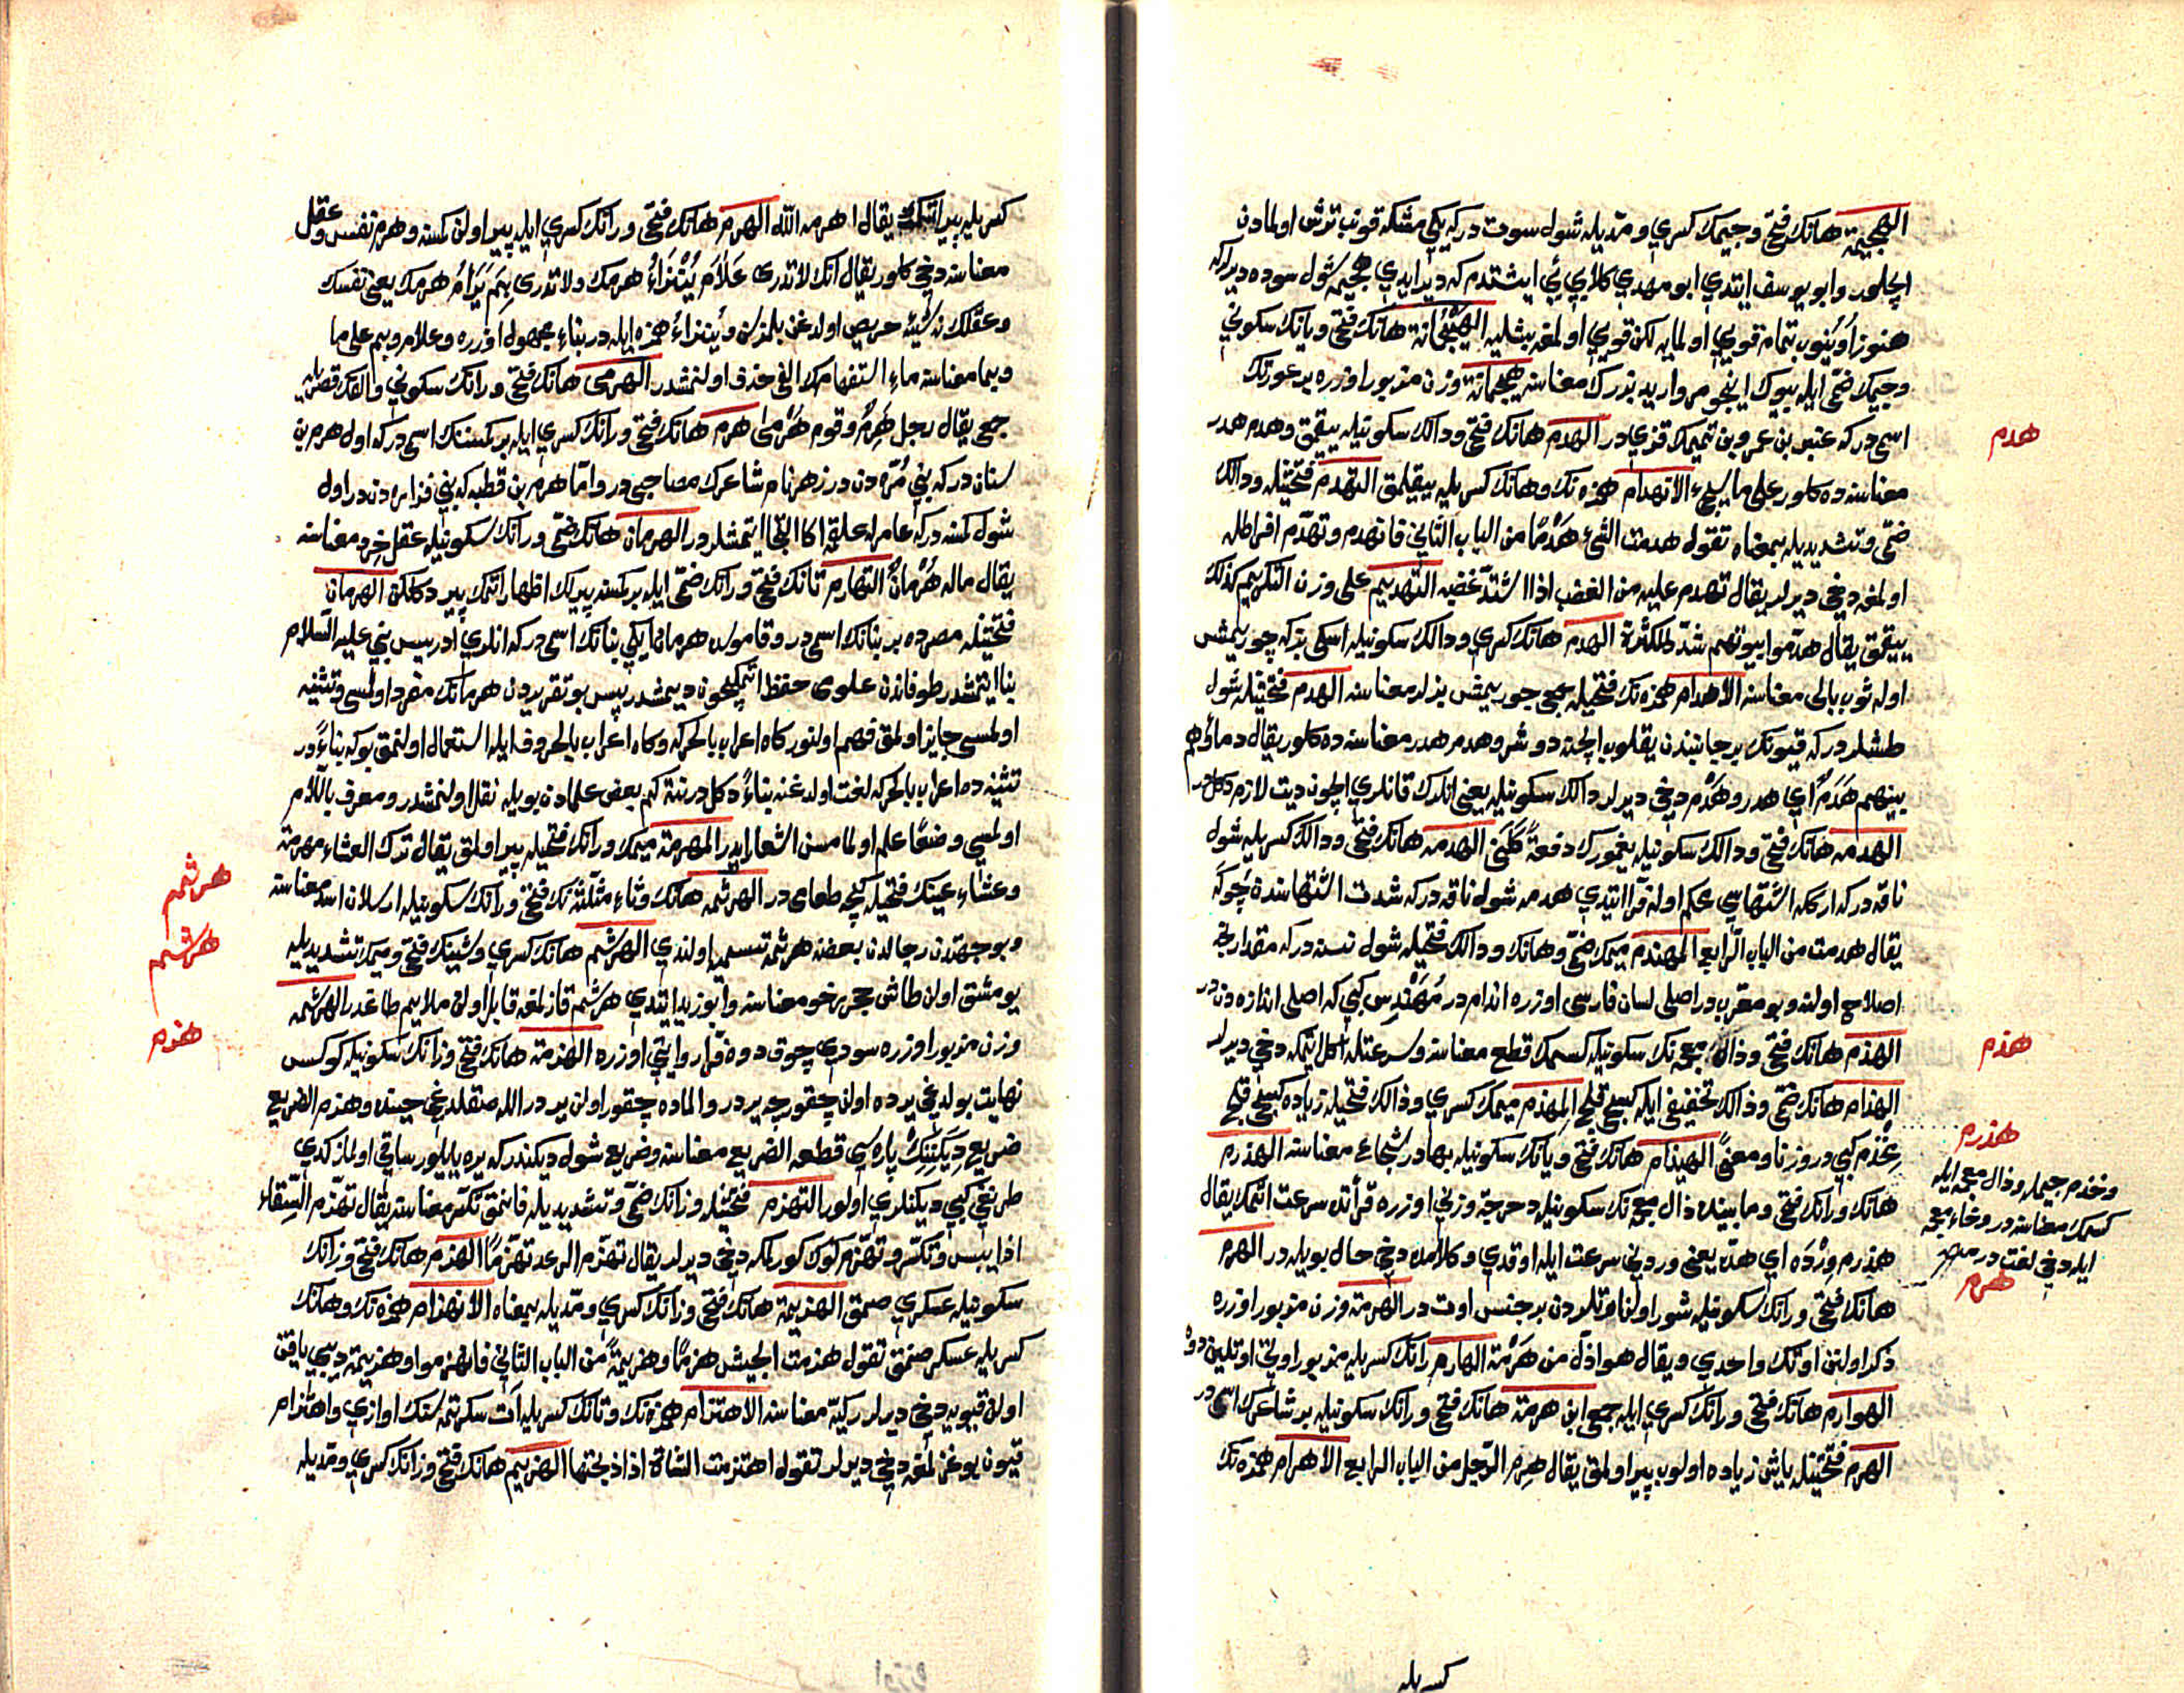 الهجيمة هانك فتحی وجيمك كسري ومدّيله شول سوت دركه يكي مشكه قونب ترش اولمادن
ايچلور وابو يوسف ايتدي ابو مهدي كلابي ئي ايشتدم كه دير ايدي هجيمه شول سوده ديرلركه
هنوز اويوب تمام قويي اولمايه لكن قويي اولمغه بشليه الهيجمانة هانك فتحی ويانك سكوني
وجيمك ضمّی ايله بيوك اينجو مرواريد بزرك معناسنه هيجمانة وزن مزبور اوزره بر عورتك
اسمی دركه عنبر بن عمرو بن تميمك قزي در الهدم هانك فتحی ودالك سكونيله ييقمق وهدم هدر
معناسنده كلور على ما يجيء الانهدام همزه نك وهانك كسريله ييقيلمق التهدم فتحتينله ودالك
ضمّی وتشديديله بمعناه تقول هدمت الشئ هدمًا من الباب الثاني فانهدم وتهدّم افراطله
اولمغه دخي ديرلر يقال تهدم عليه من الغضب اذا اشتدّ غضبه التهديم على وزن التكريم كذلك
ييقمق يقال هدّموا بيوتهم شدّد للكثرة الهدم هانك كسري ودالك سكونيله اسكی بز كه چوريمش
اوله ثوب بالی معناسنه الاهدام همزه نك فتحيله جمعی چوريمش بزلر معناسنه الهدم فتحتينله شول
طشلردركه قيونك بر جانبندن ييقلوب ايچنه دوشر وهدم هدر معناسنده كلور يقال دماؤهم
بينهم هدم اي هدر وهدم دخي ديرلر دالك سكونيله يعني انلرك قانلري ايچون ديت لازم دكلدر
الهدمه هانك فتحی ودالك سكونيله يغمورك دفعةً كلني الهدمه هانك فتحی ودالك كسريله شول
ناقه دركه اركه اشتهاسي عكم اوله فرّا ايتدي هدمه شول ناقه دركه شدت اشتهاسندن چوكه
يقال هدمت من الباب الرابع المهندم ميمك ضمّی وهانك ودالك فتحيله شول نسنه دركه مقدارنجه
اصلاح اولنه وبو معرّب در اصلی لسان فارسی اوزره اندام در مهندس كبي كه اصلی اندازه دن در
الهذم هانك فتحی وذال معجمه نك سكونيله كسمك قطع معناسنه وسرعتله اكل ايتمكه دخي ديرلر
الهذام هانك ضمّی وذالك تخفيفی ايله كسكين قلج المهذم ميمك كسري وذالك فتحيله زياده كسكين قلج
مخذم كبي در وزنا ومعنًى الهيذام هانك فتحی ويانك سكونيله بهادر شجاع معناسنه الهذرم
هانك ورانك فتحی ومابينده ذال معجمه نك سكونيله دحرجة وزني اوزره قرأتده سرعت ايتمك يقال
هذرم ورده اي هذّه يعنی وردني سرعت ايله اوقدي وكلامده دخي حال بويله در الهرم
هانك فتحی ورانك سكونيله شور اولنان اوتلردن بر جنس اوت در الهرمة وزن مزبور اوزره
ذكر اولنن اوتك واحدي ويقال هو اذلّ من هرمة الهارم رانك كسريله مزبور اوتي اوتلين دوه
الهوارم هانك فتحی ورانك كسري ايله جمعی ابن هرمة هانك فتحی ورانك سكونيله بر شاعرك اسمی در
الهرم فتحتينله ياشی زياده اولوب پير اولمق يقال هرم الرّجل من الباب الرابع الاهرام همزه نك
هدم
هذم
هذرم
وخذم جيمله وذال معجمه ايله
كسمك معناسنه در وخاء معجمه
ايله دخي لغت در
هرم
كسريله
كسريله پير ايتمك يقال اهرمه الله الهرم هانك فتحی ورانك كسري ايله پير اولن كمسنه وهرم نفس وعقل
معناسنه دخي كلور يقال انك لا تدري علام ينزأ هرمك ولا تدري بم يولع هرمك يعنی نفسك
وعقلك نه شيئه حريص اولدغن بلمزسن وينزأ همزه ايله در بناء مجهول اوزره وعلام وبم على ما
وبما معناسنه ماء استفهامك الفی حذف اولنمشدر الهرمی هانك فتحی ورانك سكوني والفك قصريله
جمعی يقال رجل هرم وقوم هرمى هرم هانك فتحی ورانك كسري ايله بر كمسنك اسمی دركه اول هرم بن
سنان دركه بني مرّه دن در زهير نام شاعرك مصاحبی در وامّا هرم بن قطبه كه بني فزاره دن در اول
شول كمسنه دركه عامر ايله علقمه اكا التجا ايتمشلردر الهرمان هانك ضمّی ورانك سكونيله عقل خرد معناسنه
يقال ماله هرمان التهارم تانك فتحی ورانك ضمّی ايله بر كمسنه پيرلك اظهار ايتمك پير دكلكن الهرمان
فتحتينله مصرده بر بنانك اسمی در وقاموس هرمان ايكي بنانك اسمی دركه انلري ادريس نبي عليه السّلام
بنا ايتمشدر طوفاندن علومی حفظ ايتمك ايچون ديمشدر پس بو تقريردن هرمانك مفرد اولمسی وتثنيه
اولمسی جايز اولمق فهم اولنور كاه اعراب بالحركه وكاه اعراب بالحروف ايله استعمال اولنمق بوكه بناءً در
تثنيه ده اعراب بالحركه لغت اولدغنه بناءً دكلدر نته كم بعض علمادن بويله نقل اولنمشدر ومعرف باللّام
اولمسي وضعًا علم اولمامسن اشعار ايدر المهرمة ميمك ورانك فتحيله پير اولمق يقال ترك العشاء مهرمة
وعشاء عينك فتحيله كيجه طعامی در الهرثمه هانك وثاء مثلّثه نك فتحی ورانك سكونيله ارسلان اسد معناسنه
وبو جهتدن رجالدن بعضه هرثمه تسميه اولندي الهرشم هانك كسري وشينك فتحی وميمك تشديديله
يومشق اولن طاش حجر رخو معناسنه وابو زيد ايتدي هرشم قازلمغه قابل اولن ملايم طاغدر الهرشمه
وزن مزبور اوزره سودي چوق دوه فرّا روايتي اوزره الهزمة هانك فتحی وزانك سكونيله كوكس
نهايت بولديغي يرده اولن چقورجه يردر والماده چقور اولن يردر الله صقلديغي حينده وهزم الضريع
ضريع ديكننك پاره سي قطعه الضريع معناسنه وضريع شول ديكندركه يره يايلور ساقی اولماز كدي
طرنغي كبي ديكنلري اولور التهزم فتحتينله وزانك ضمّی وتشديديله قانمق تكسّر معناسنه يقال تهزّم السّقاء
اذا يبس وتكسّر وتهزّم كوك كورلمكه دخي ديرلر يقال تهزّم الرعد تهزّمًا الهزم هانك فتحی وزانك
سكونيله عسكري صمق الهزيمة هانك فتحی وزانك كسري ومدّيله بمعناه الانهزام همزه نك وهانك
كسريله عسكر صنمق تقول هزمت الجيش هزمًا وهزيمةً من الباب الثاني فانهزموا وهزيمة ديبی ياقن
اولن قيويه دخي ديرلر ركيّه معناسنه الاهتزام همزه نك وتانك كسريله آت سكرتمه سنك اوازي واهتزام
قيون بوغزلمغه دخي ديرلر تقول اهتزمت الشاة اذا ذبحتها الهزيم هانك فتحی وزانك كسري ومدّيله
هرثمه
هرشم
هزم